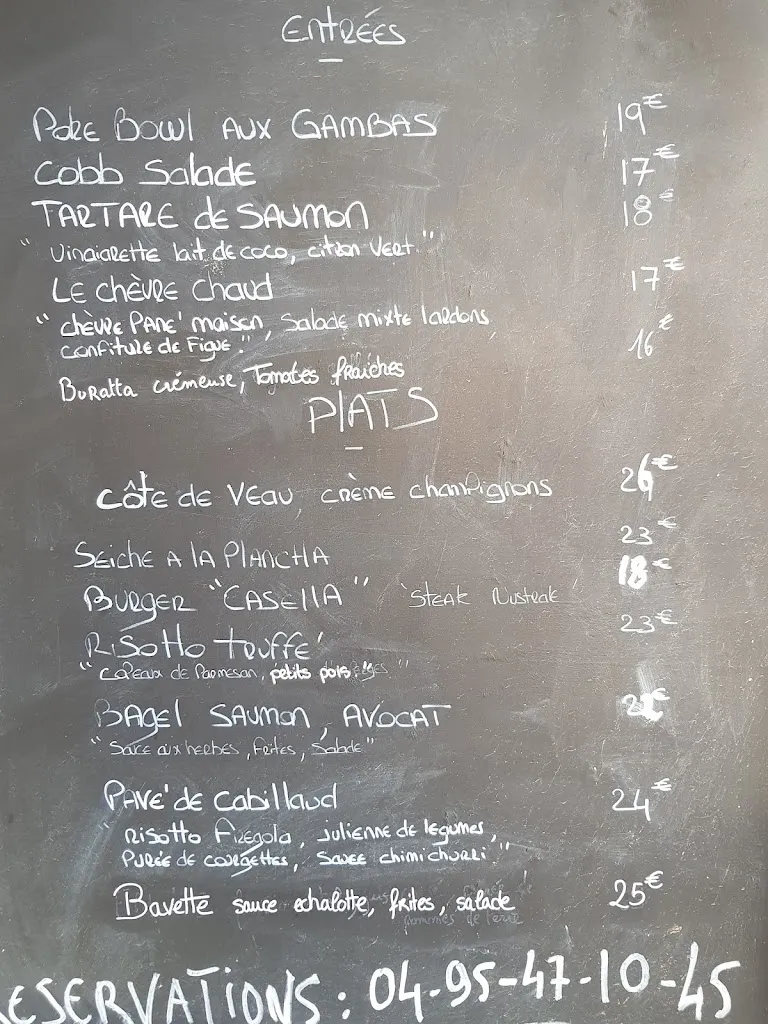 Entrées
Poke Bowl aux Gambas 19€
Cobb Salade 17€
Tartare de Saumon 18€
" Vinaigrette lait de coco, citron vert "
Le chèvre chaud 17€
" chèvre Pané maison, Salade mixte lardons,
Confiture de Figue. " 16€
Buratta crémeuse, Tomates fraîches
Plats
Côte de Veau, crème champignons 26€
Seiche a la Plancha 23€
Burger "Casella" 'Steak 18€
Risotto truffé 23€
" Copeaux de Parmesan, petits pois "
Bagel Saumon, Avocat
" Sauce aux herbes, Frites, Salade "
Pavé de Cabillaud 24€
" Risotto Frégola, julienne de légumes,
Purée de courgettes, Sauce chimichurri. "
Bavette sauce echalotte, frites, salade 25€
ESERVATIONS : 04-95-47-10-45